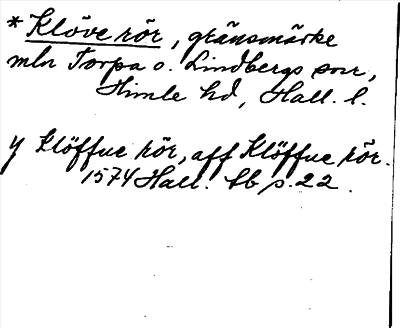 * Klöve rör, gränsmärke
mln Torpa o. Lindbergs snr,
Himle hd, Hall. l.
y Klöffue rör, aff Klöffue rör.
1574 Hall. lb p. 22.